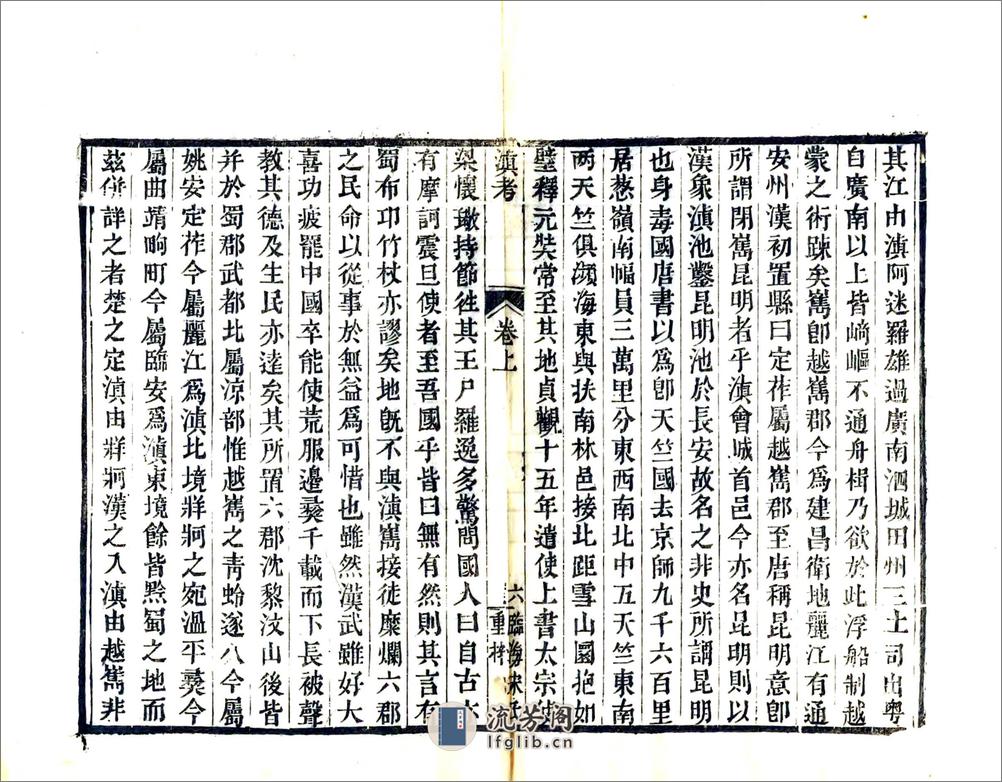 其江由滇阿迷羅雄過廣南泗城田州三土司出粤
自廣南以上皆崎嶇不通舟楫乃欲於此浮船制越
蒙之術踈矣嶲卽越嶲郡今爲建昌衛地麗江有通
安州漢初置縣曰定莋屬越嶲郡至唐稱昆明意卽
所謂閉嶲昆明者乎滇會城首邑今亦名昆明則以
漢象滇池鑿昆明池於長安故名之非史所謂昆明
也身毒國唐書以爲卽天竺國去京師九千六百里
居葱嶺南幅員三萬里分東西南北中五天竺東南
兩天竺俱瀕海東與扶南林邑接北距雪山圜抱如
壁釋元奘常至其地貞觀十五年遣使上書太宗
滇考
卷上
六
臨海宋氏
重梓
梁懷璥持節往其王尸羅逸多驚問國人曰自古
有摩訶震旦使者至吾國乎皆曰無有然則其言有
蜀布卭竹杖亦謬矣地旣不與滇嶲接徒糜爛六郡
之民命以從事於無益爲可惜也雖然漢武雖好大
喜功疲罷中國卒能使荒服邊彝千載而下長被聲
教其德及生民亦逹矣其所置六郡沈黎汶山後皆
并於蜀郡武都北屬涼部惟越嶲之靑蛉遂八今屬
姚安定莋今屬麗江爲滇北境牂牁之宛溫平彝今
屬曲靖呴町今屬臨安爲滇東境餘皆黔蜀之地而
茲併詳之者楚之定滇由牂牁漢之入滇由越嶲非
流芳閣
lfglib.cn